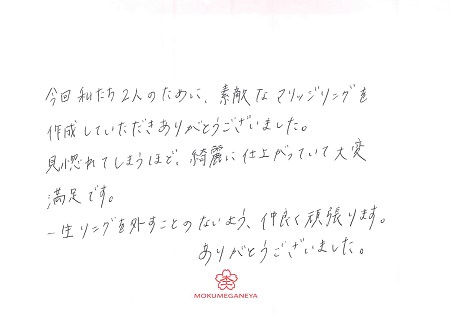 今回私たち2人のために、素敵なマリッジリングを
作成していただきありがとうございました。
見惚れてしまうほど、綺麗に仕上がっていて大変
満足です。
一生リングを外すことのないよう、仲良く頑張ります。
ありがとうございました。
MOKUMEGANEYA